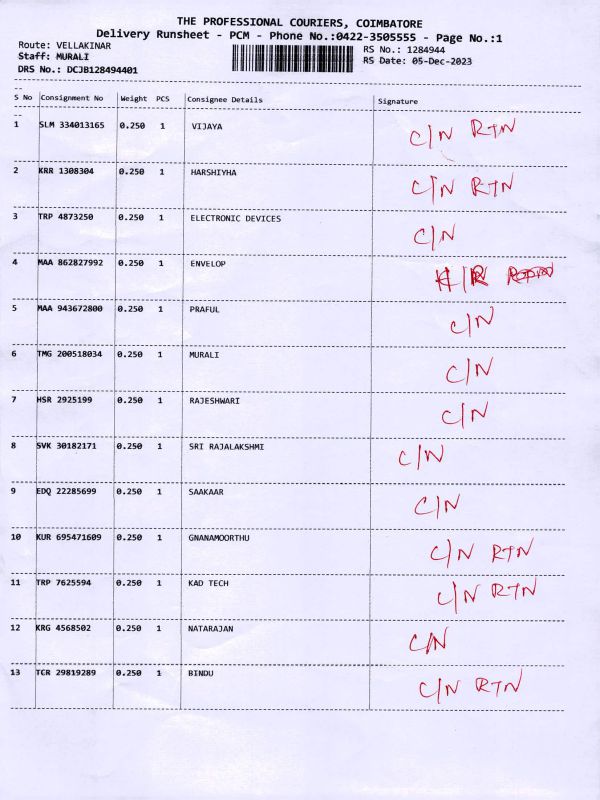 THE PROFESSIONAL COURIERS, COIMBATORE
Delivery Runsheet - PCM - Phone No.:0422-3505555 - Page No.:1
Route: VELLAKINAR RS No.: 1284944
Staff: MURALI RS Date: 05-Dec-2023
DRS No.: DCJB128494401
S No Consignment No Weight PCS Consignee Details Signature
1 SLM 334013165 0.250 1 VIJAYA C/N RTN
2 KRR 1308304 0.250 1 HARSHIYHA C/N RTN
3 TRP 4873250 0.250 1 ELECTRONIC DEVICES C/N
4 MAA 862827992 0.250 1 ENVELOP
5 MAA 943672800 0.250 1 PRAFUL C/N
6 TMG 200518034 0.250 1 MURALI C/N
7 HSR 2925199 0.250 1 RAJESHWARI C/N
8 SVK 30182171 0.250 1 SRI RAJALAKSHMI C/N
9 EDQ 22285699 0.250 1 SAAKAAR C/N
10 KUR 695471609 0.250 1 GNANAMOORTHU C/N RTN
11 TRP 7625594 0.250 1 KAD TECH C/N RTN
12 KRG 4568502 0.250 1 NATARAJAN C/N
13 TCR 29819289 0.250 1 BINDU C/N RTN